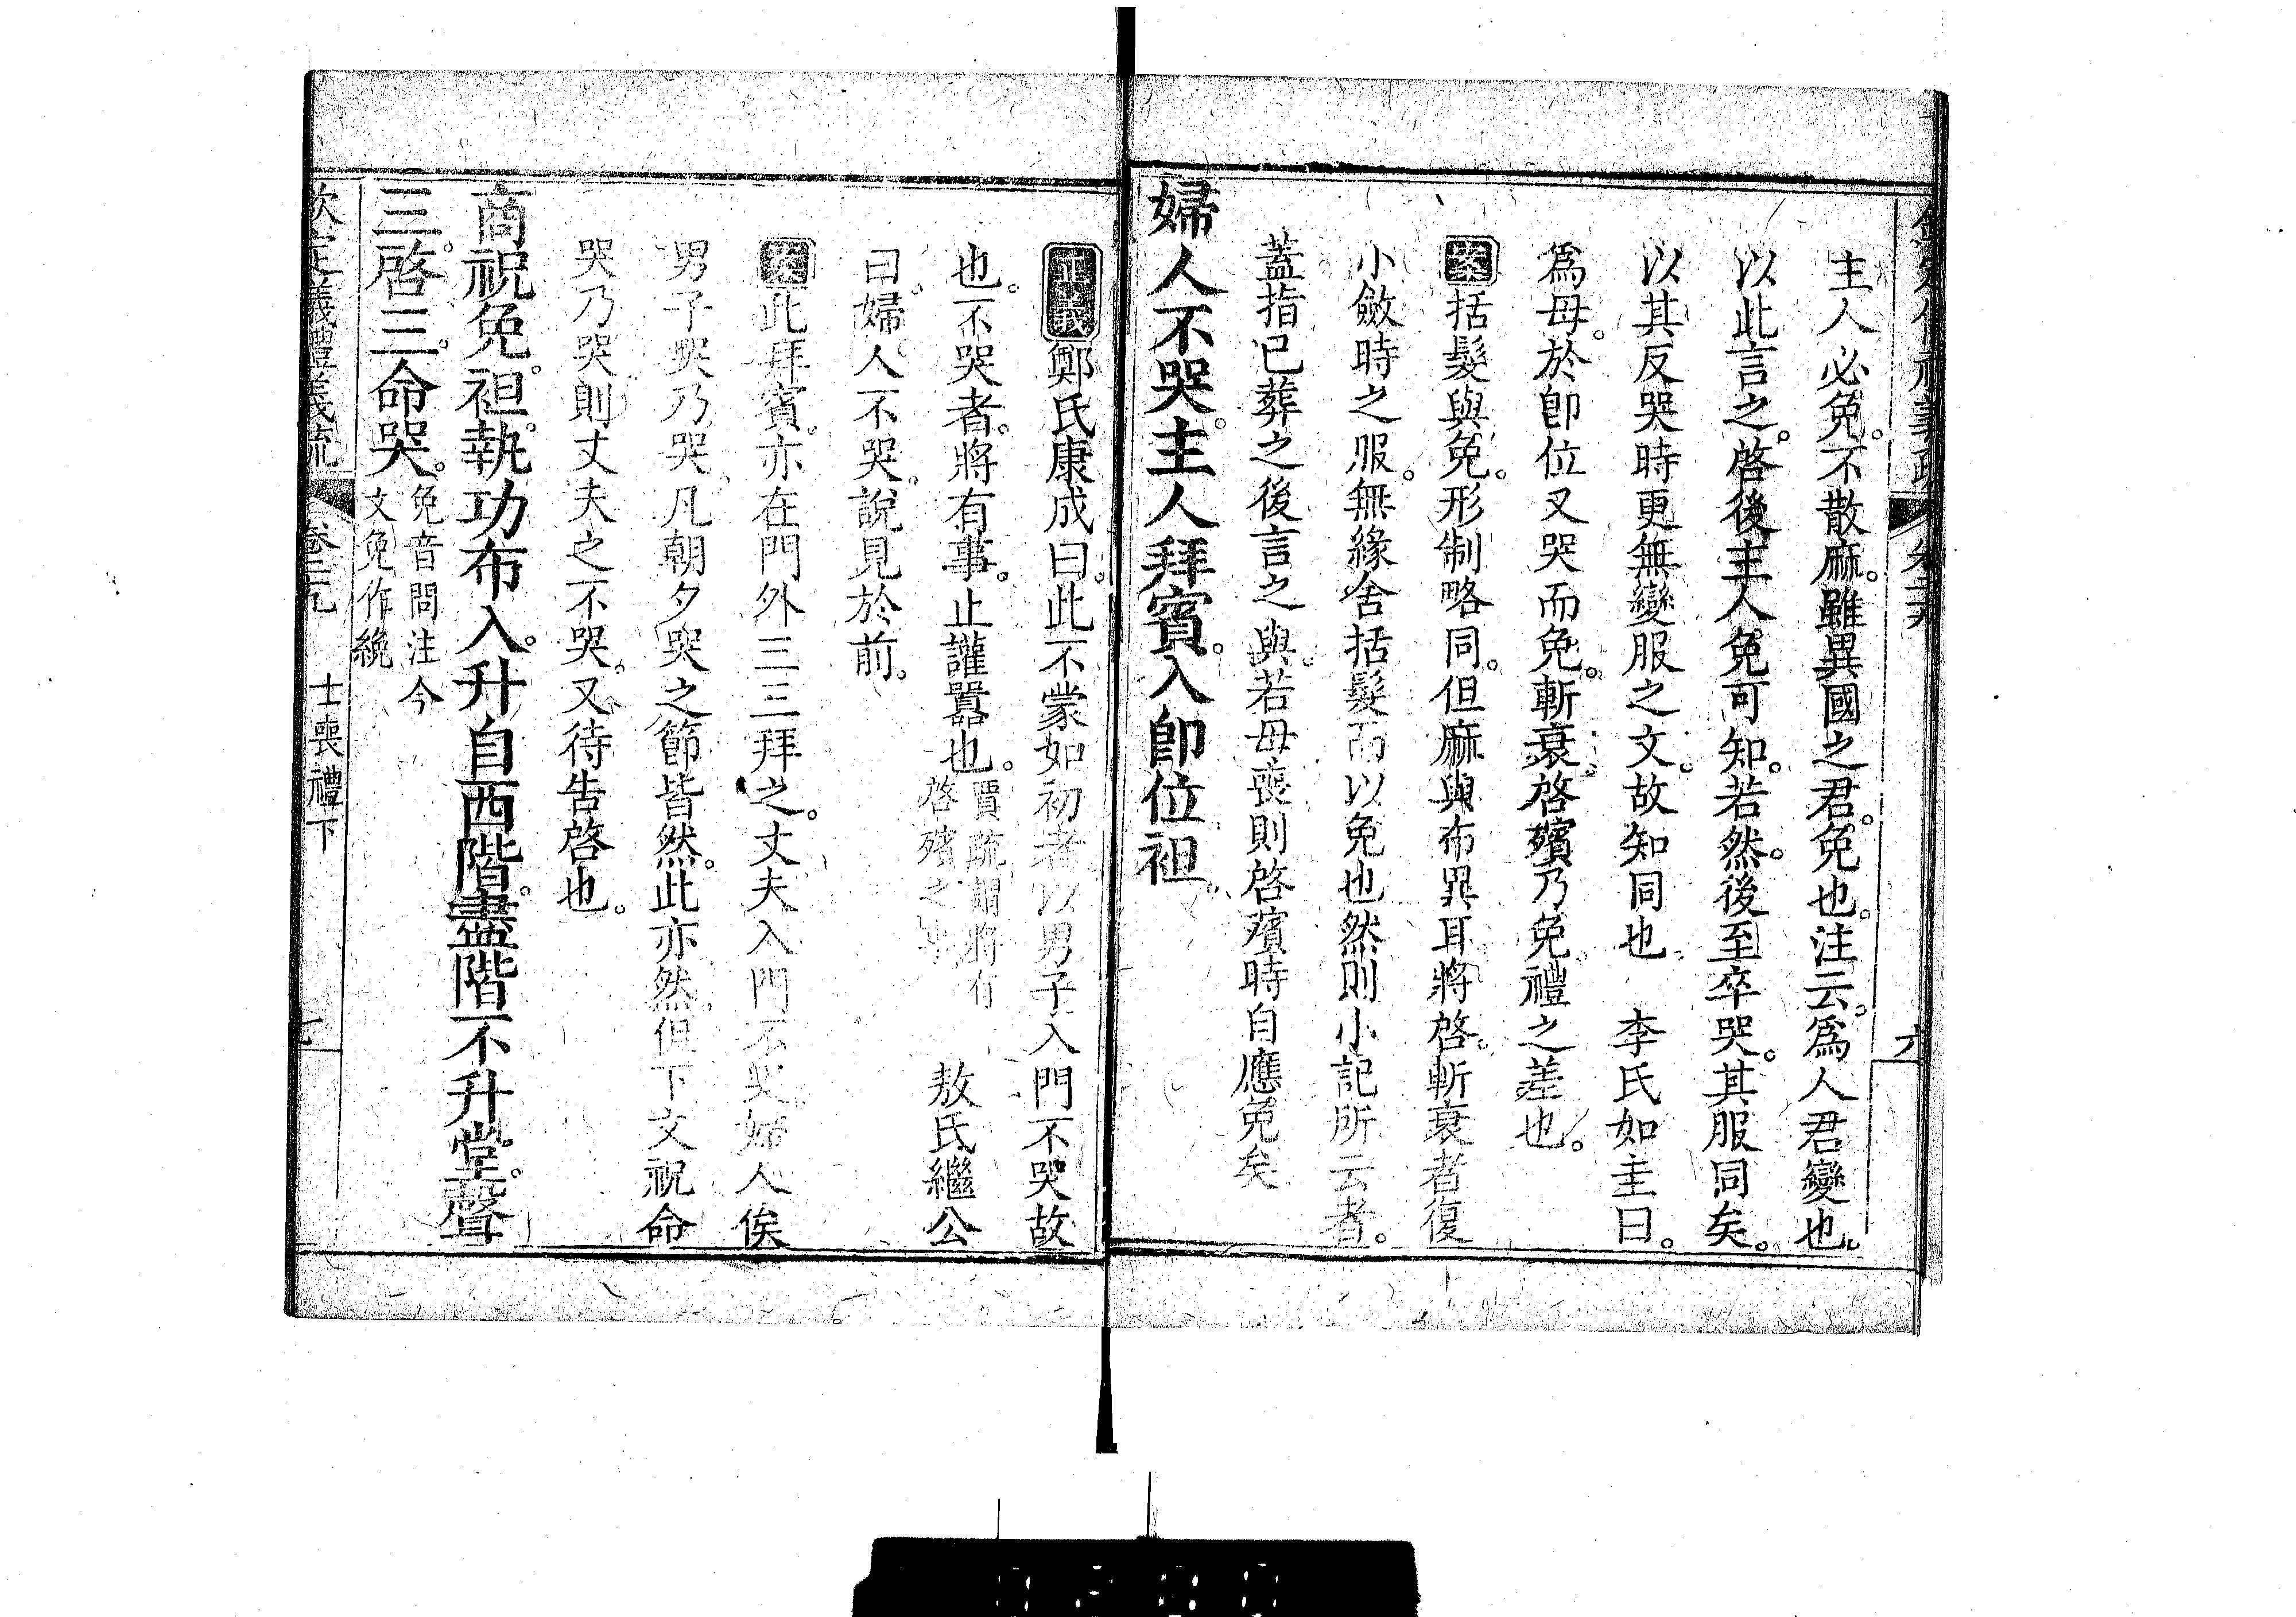 欽定儀禮義疏 卷二十九 六
主人必免。不散麻。雖異國之君。免也。注云。爲人君變也。
以此言之。啓後主人免可知。若然。後至卒哭。其服同矣。
以其反哭時更無變服之文。故知同也 李氏如圭曰。
爲母。於卽位又哭而免。斬衰。啓殯乃免。禮之差也。
案括髮與免。形制略同。但麻與布異耳將啓。斬衰者復
小斂時之服。無緣舍括髮而以免也然則小記所云者。
蓋指已葬之後言之與。若母喪則啓殯時自應免矣
婦人不哭。主人拜賓。入卽位袒。
正義鄭氏康成曰。此不蒙如初者以男子入門不哭故
也。不哭者。將有事。止讙囂也。賈疏謂將有
啓殯之事 敖氏繼公
曰。婦人不哭。說見於前。
案此拜賓。亦在門外三三拜之。丈夫入門不哭婦人俟
男子哭乃哭。凡朝夕哭之節皆然。此亦然。但下文祝命
哭乃哭則丈夫之不哭。又待告啓也。
商祝免。袒。執功布入。升自西階。盡階不升堂。聲
三。啓三。命哭。免音問注今
文免作絻
欽定儀禮義疏 卷二十九 士喪禮下 七